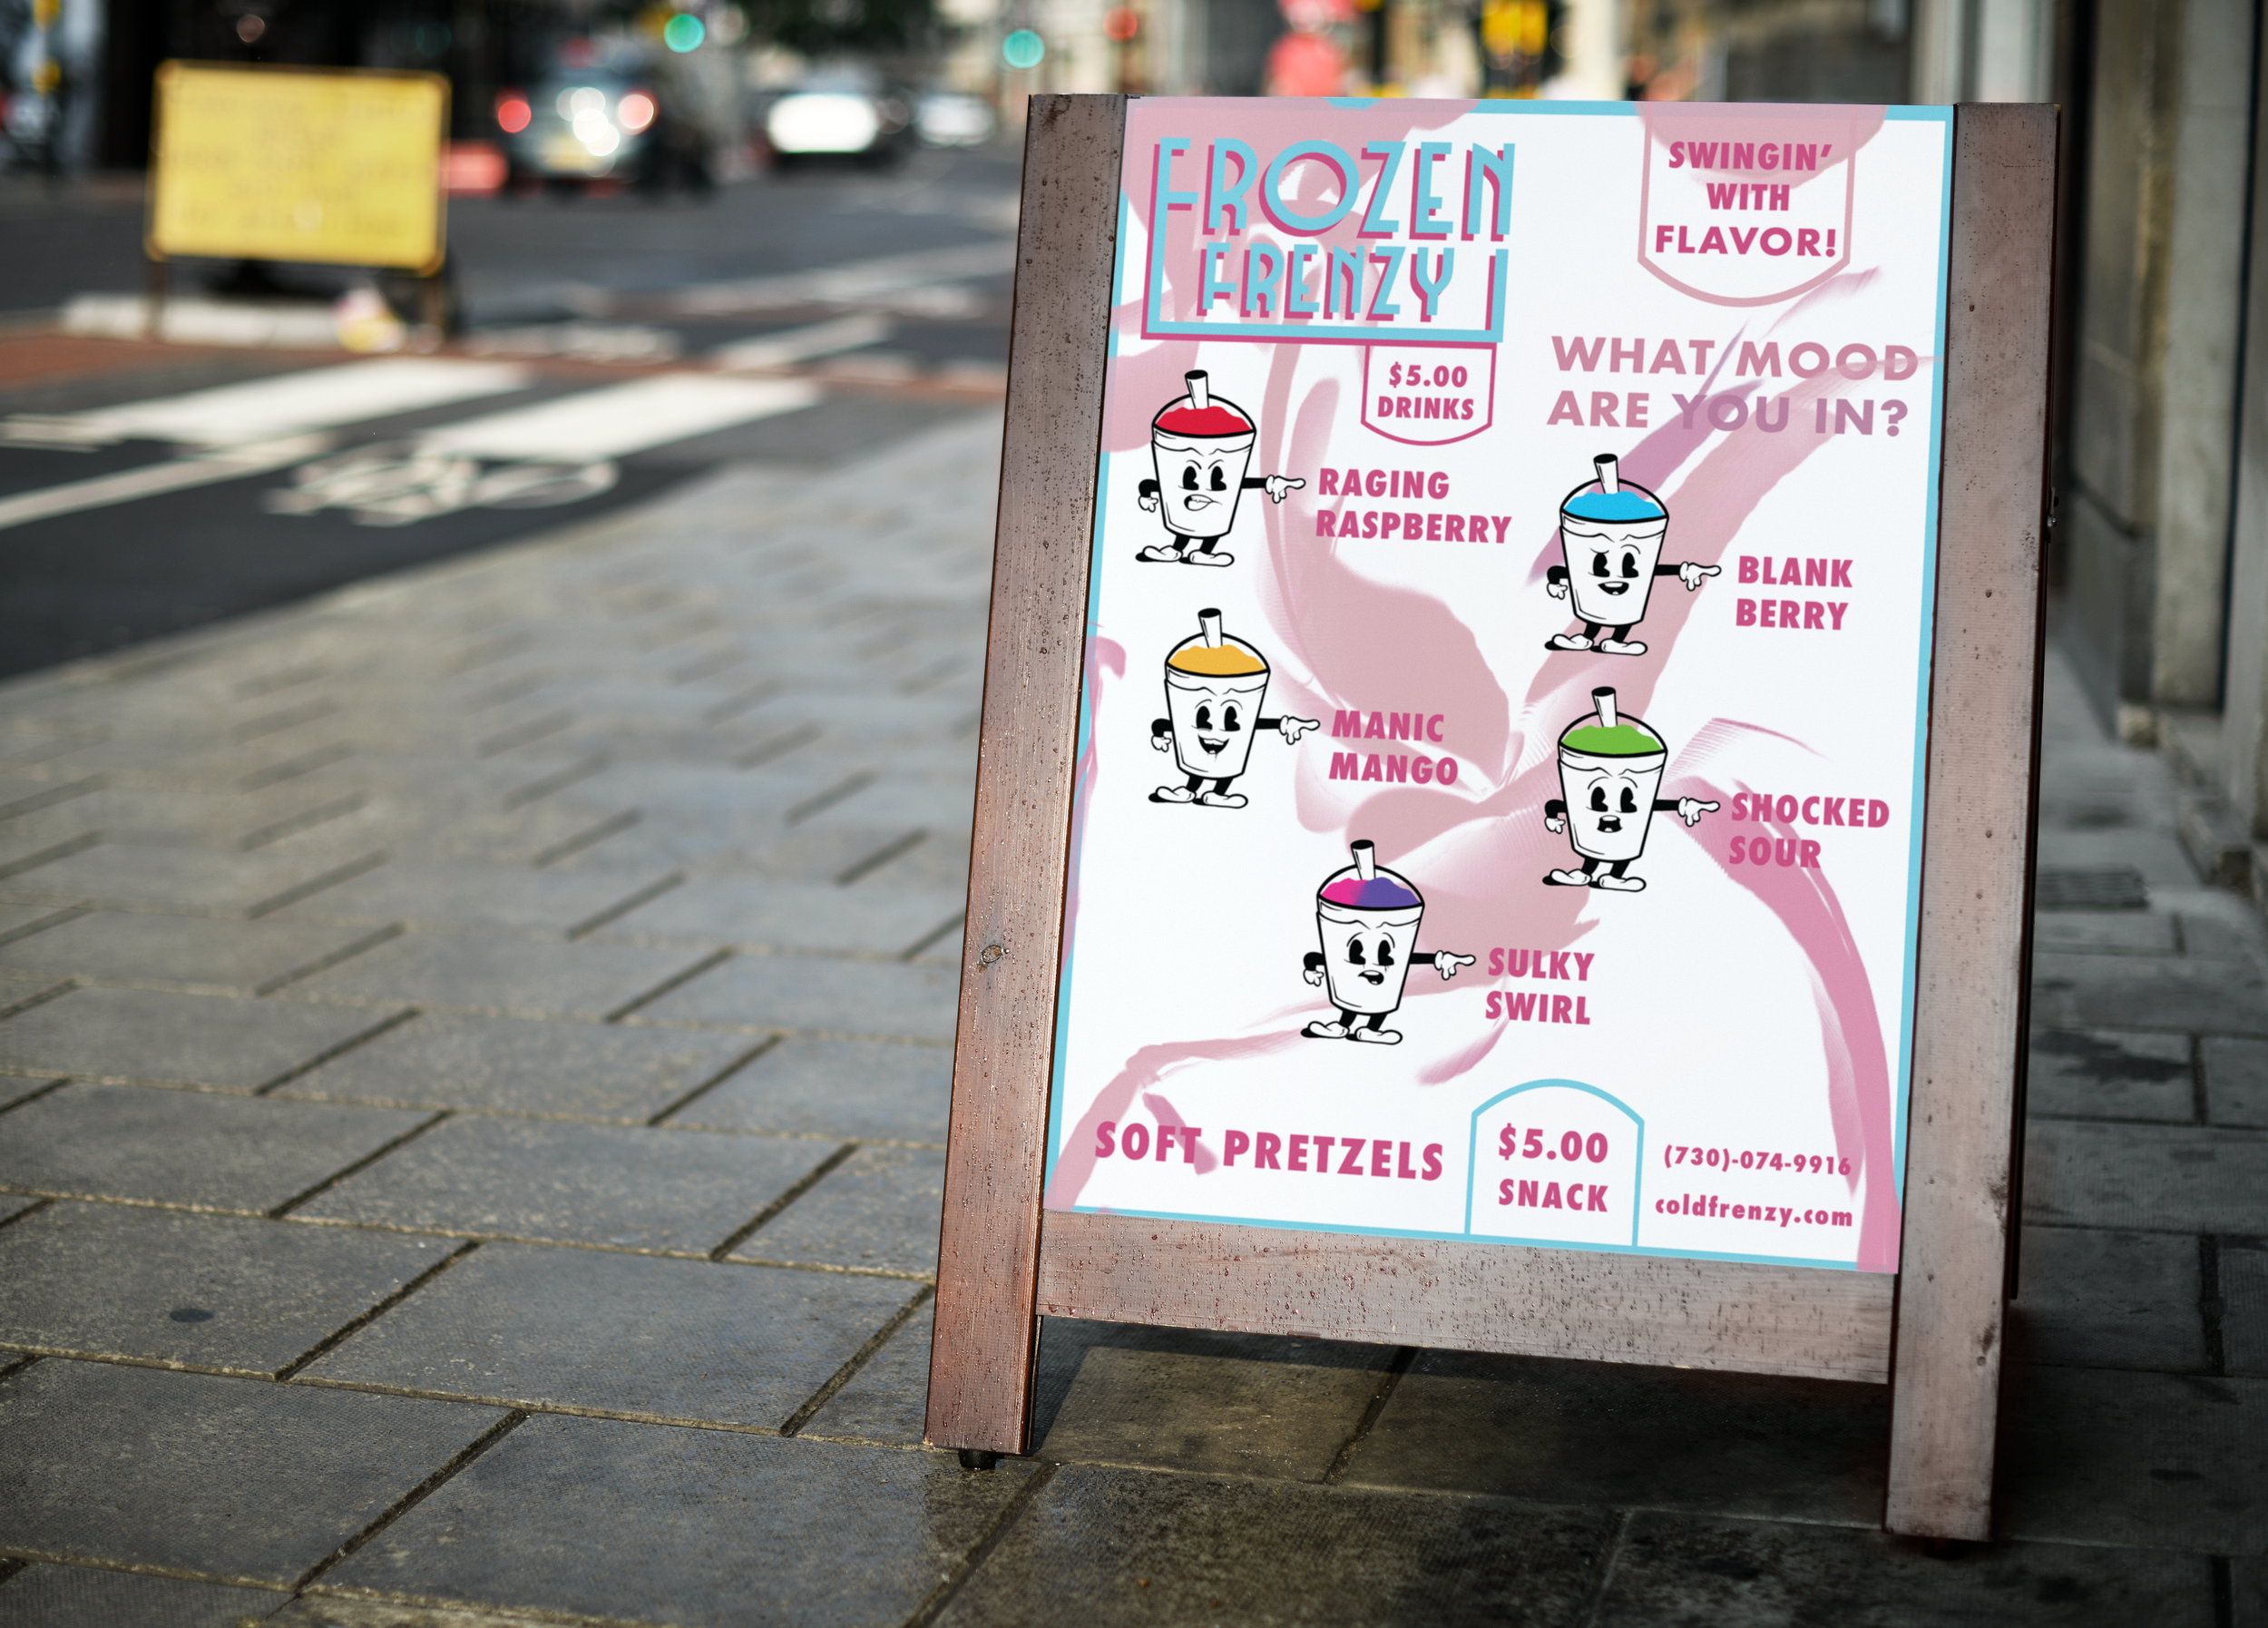 FROZEN
FRENZY
SWINGIN'
WITH
FLAVOR!
$5.00
DRINKS
WHAT MOOD
ARE YOU IN?
RAGING
RASPBERRY
BLANK
BERRY
MANIC
MANGO
SHOCKED
SOUR
SULKY
SWIRL
SOFT PRETZELS
$5.00
SNACK
(730)-074-9916
coldfrenzy.com